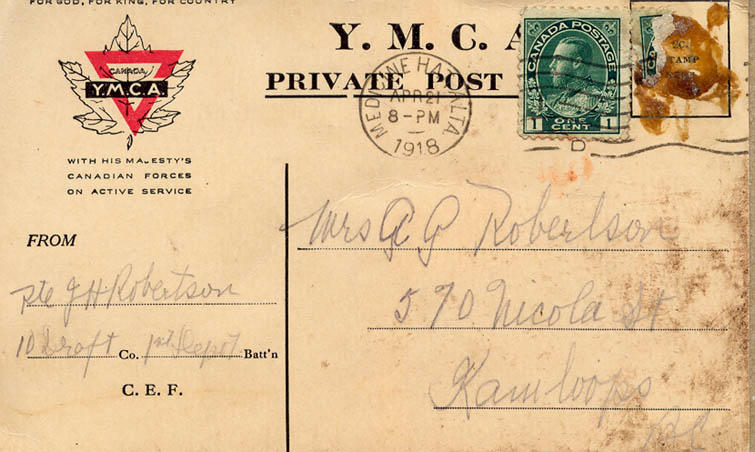 FOR GOD, FOR KING, FOR COUNTRY
CANADA
Y.M.C.A.
WITH HIS MAJESTY'S
CANADIAN FORCES
ON ACTIVE SERVICE
Y. M. C. A
PRIVATE POST
MEDICINE HAT ALTA
APR 21
8-PM
1918
CANADA POSTAGE
1 ONE CENT 1
2C.
STAMP
D
FROM
Pte J H Robertson
10 Draft Co. 1st Depot Batt'n
C. E. F.
Mrs G Robertson
570 Nicola St
Kamloops
BC